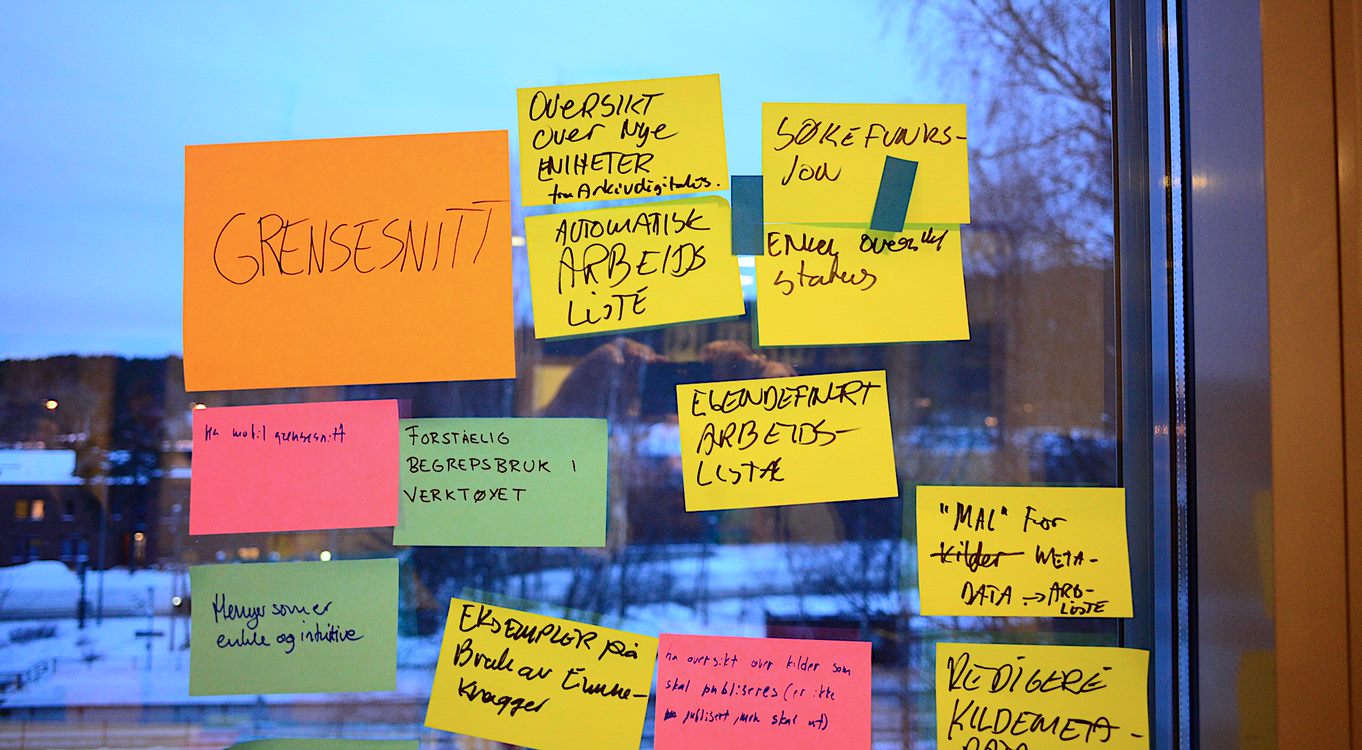 GRENSESNITT
OVERSIKT
over Nye
ENIHETER
fra Arkivdigitalis.
AUTOMATISK
ARBEIDS
LISTE
SØKEFUNKS-
JON
Enkel oversikt
status
ha mobil grensesnitt
FORSTÅELIG
BEGREPSBRUK I
VERKTØYET
EGENDEFINERT
ARBEIDS-
LISTE
"MAL" For
kilder META-
DATA → ARB-
LISTE
Menyer som er
enkle og intuitive
EKSEMPLER på
Bruk av Emne-
Knagger
ha oversikt over kilder som
skal publiseres (er ikke
publisert, men skal ut)
REDIGERE
KILDEMETA-
DATA